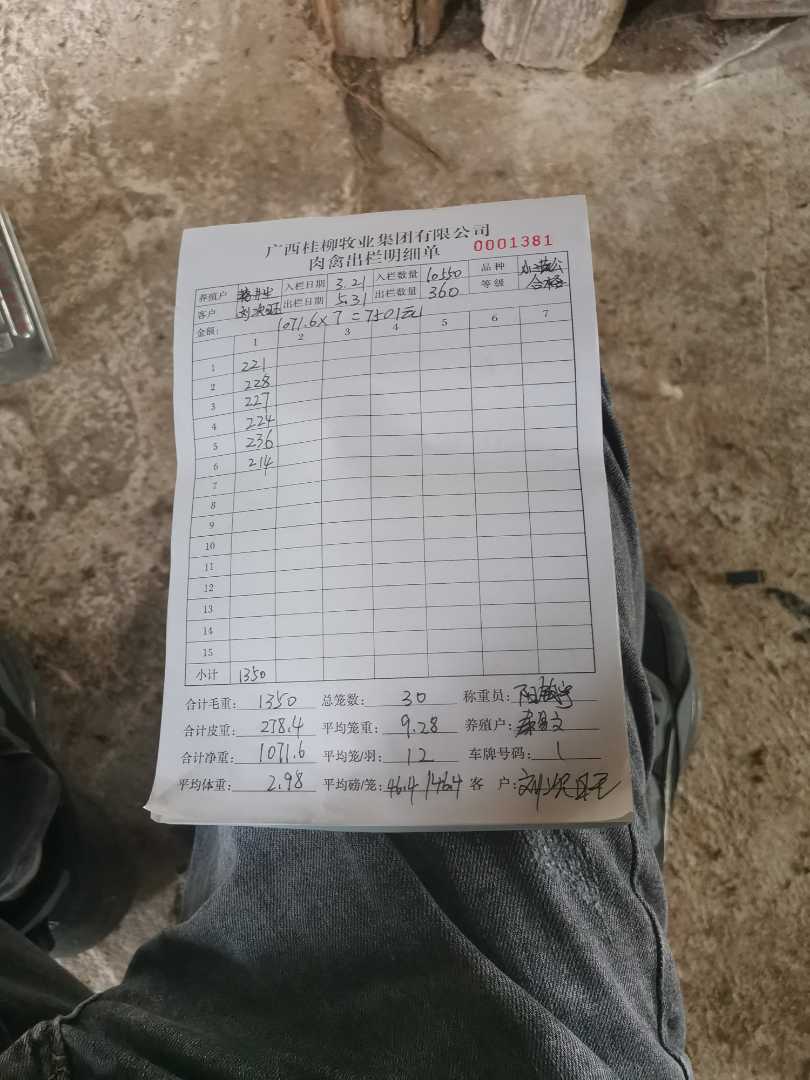 广西桂柳牧业集团有限公司
肉禽出栏明细单 0001381
养殖户 入栏日期 3.21 入栏数量 10550 品种
客户 出栏日期 5.31 出栏数量 360 等级 合格
金额: 1071.6×7=7501元
1 2 3 4 5 6 7
1 221
2 228
3 227
4 224
5 236
6 214
7
8
9
10
11
12
13
14
15
小计 1350
合计毛重: 1350 总笼数: 30 称重员:
合计皮重: 278.4 平均笼重: 9.28 养殖户:
合计净重: 1071.6 平均笼/羽: 12 车牌号码: 1
平均体重: 2.98 平均磅/笼: 46.4/46.4 客 户: